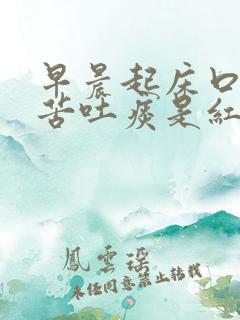 早晨起床口
苦吐痰是紅
鳳雲瑤
未经同意禁止转载